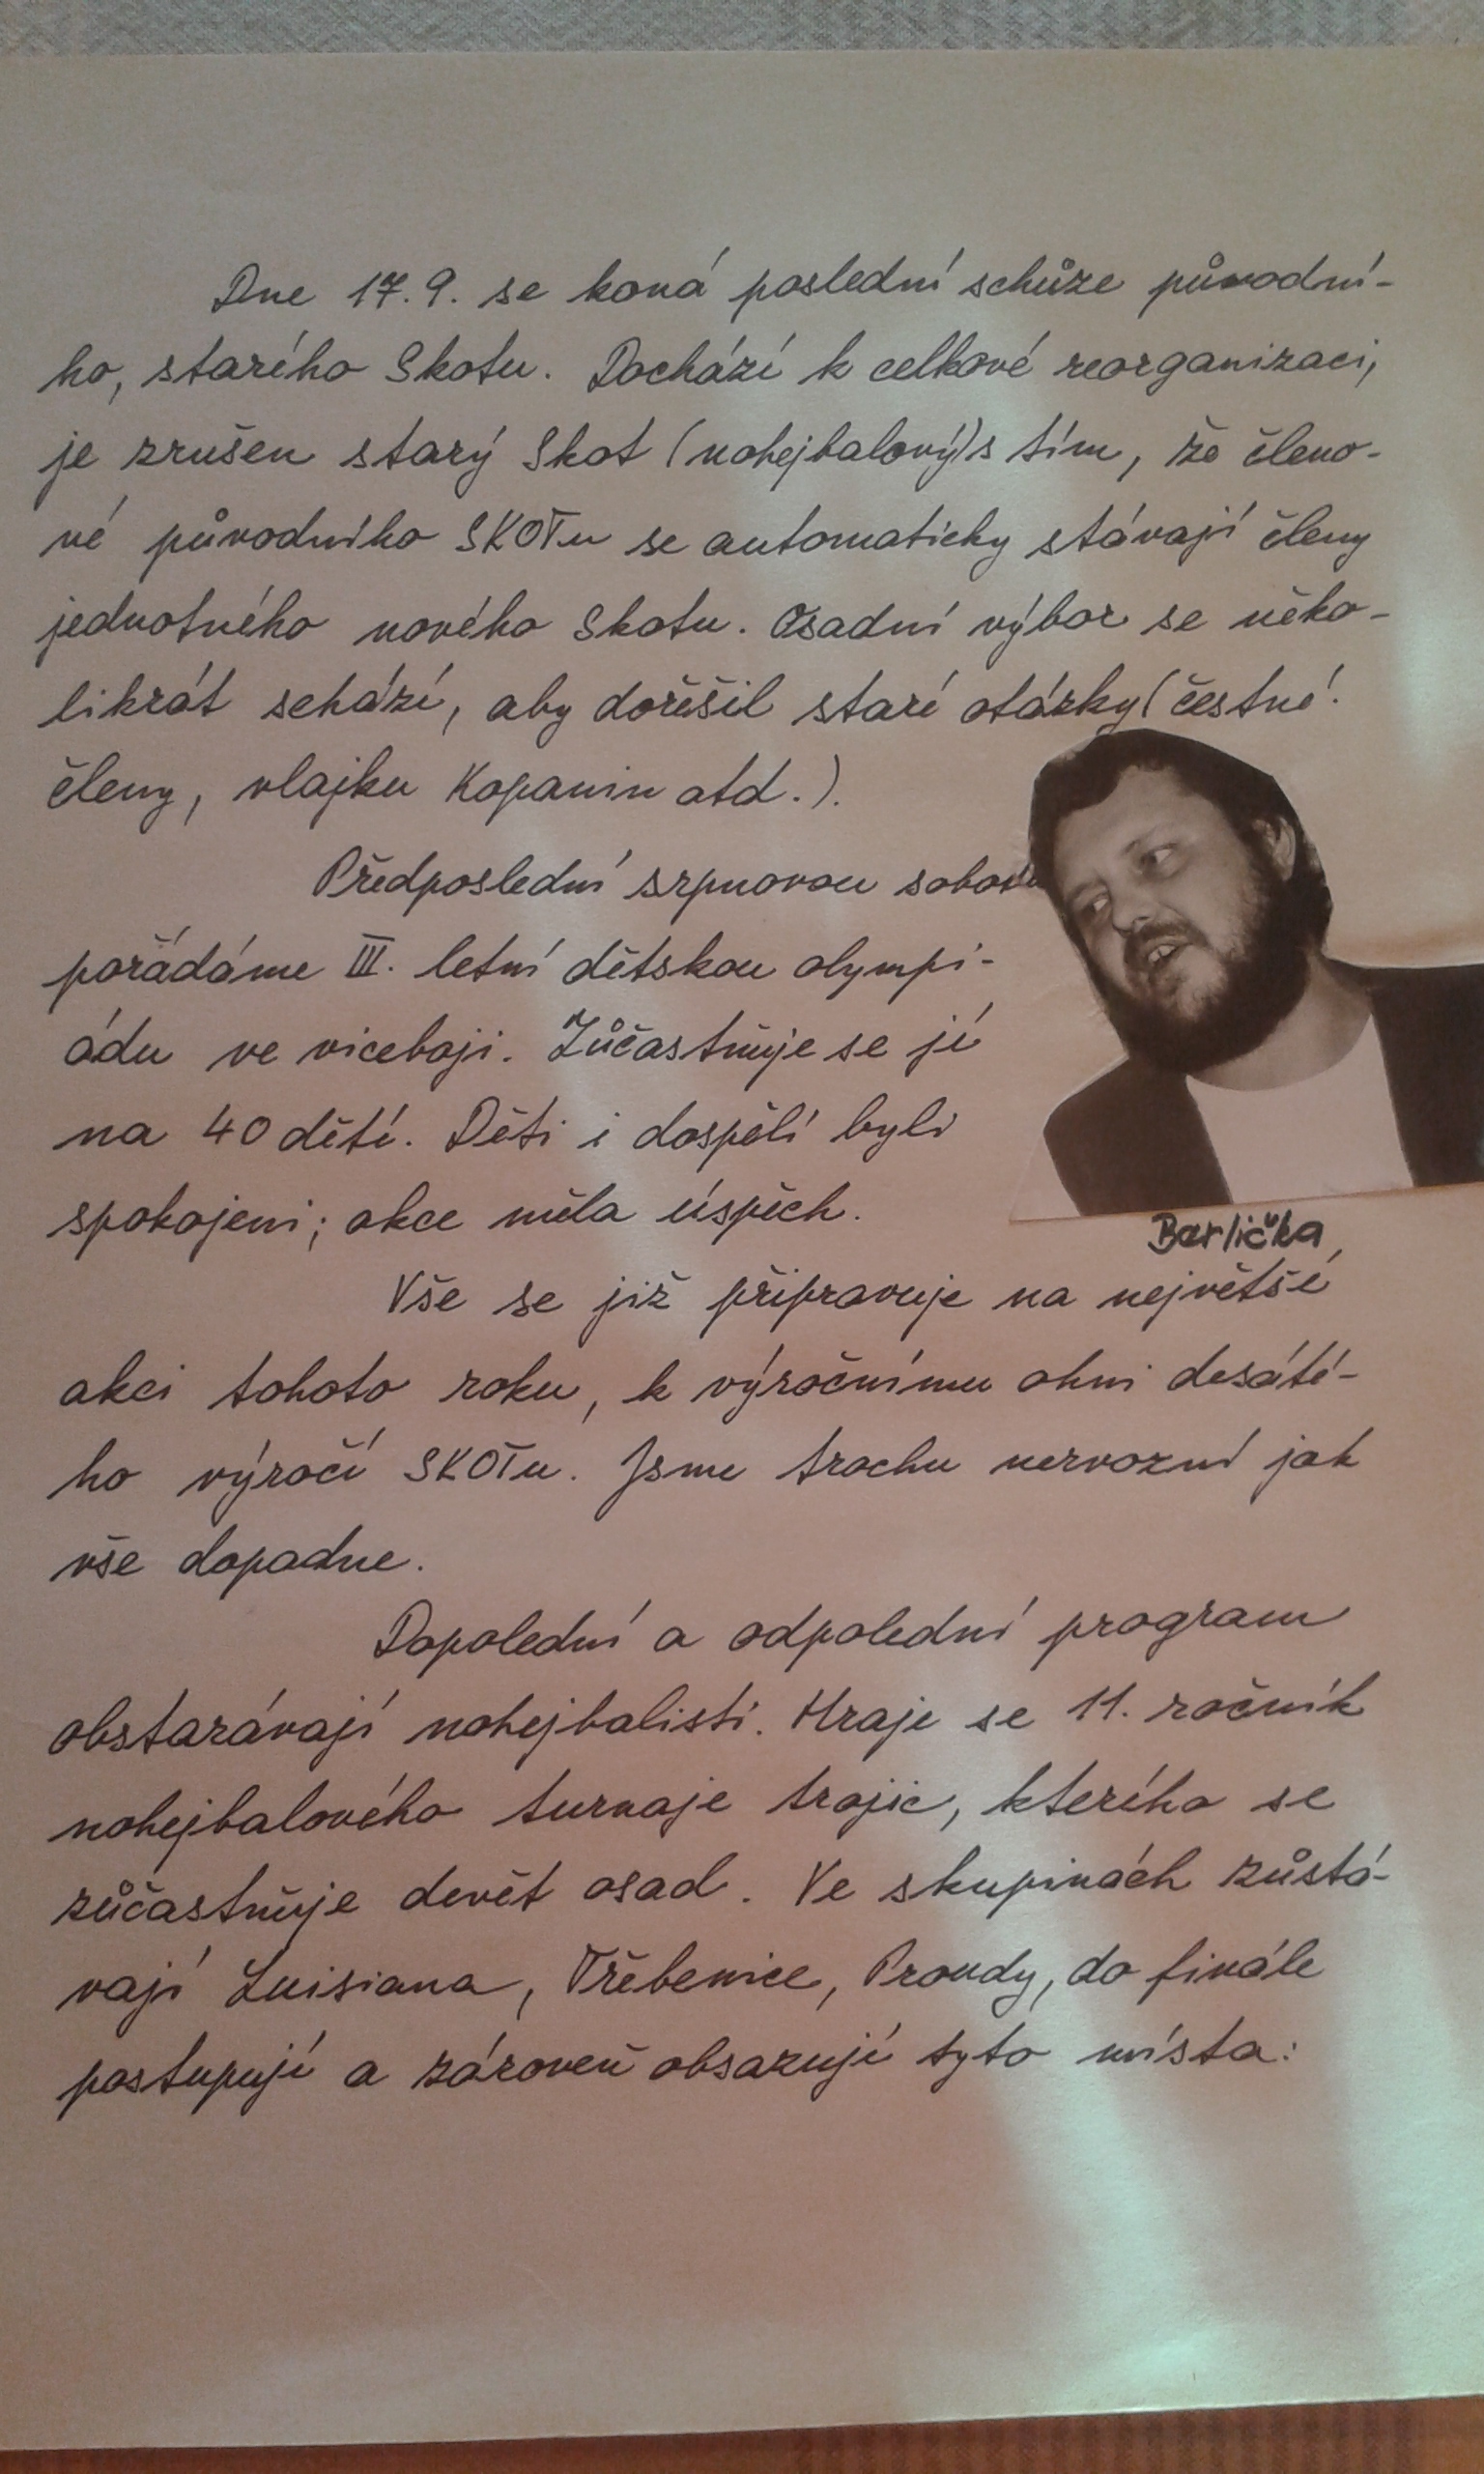 Dne 17.9. se koná poslední schůze původní-
ho, starého Skotu. Dochází k celkové reorganizaci,
je zrušen starý Skot (nohejbalový) s tím, že členo-
vé původního SKOTu se automaticky stávají členy
jednotného nového Skotu. Osadní výbor se něko-
likrát schází, aby dořešil staré otázky (čestné
členy, vlajku Kopanin atd.).
Předposlední srpnovou sobotu
pořádáme III. letní dětskou olympi-
ádu ve viceboji. Zůčastňuje se jí
na 40 dětí. Děti i dospělí byli
spokojeni; akce měla úspěch.
Barlička
Vše se již připravuje na největší
akci tohoto roku, k výročnímu ohni desáté-
ho výročí SKOTu. Jsme trochu nervozní jak
vše dopadne.
Dopolední a odpolední program
obstarávají nohejbalisti. Hraje se 11. ročník
nohejbalového turnaje trojic, kterého se
zůčastňuje devět osad. Ve skupinách zůstá-
vají Luisiana, Třebenice, Proudy, do finále
postupují a zároveň obsazují tyto místa: